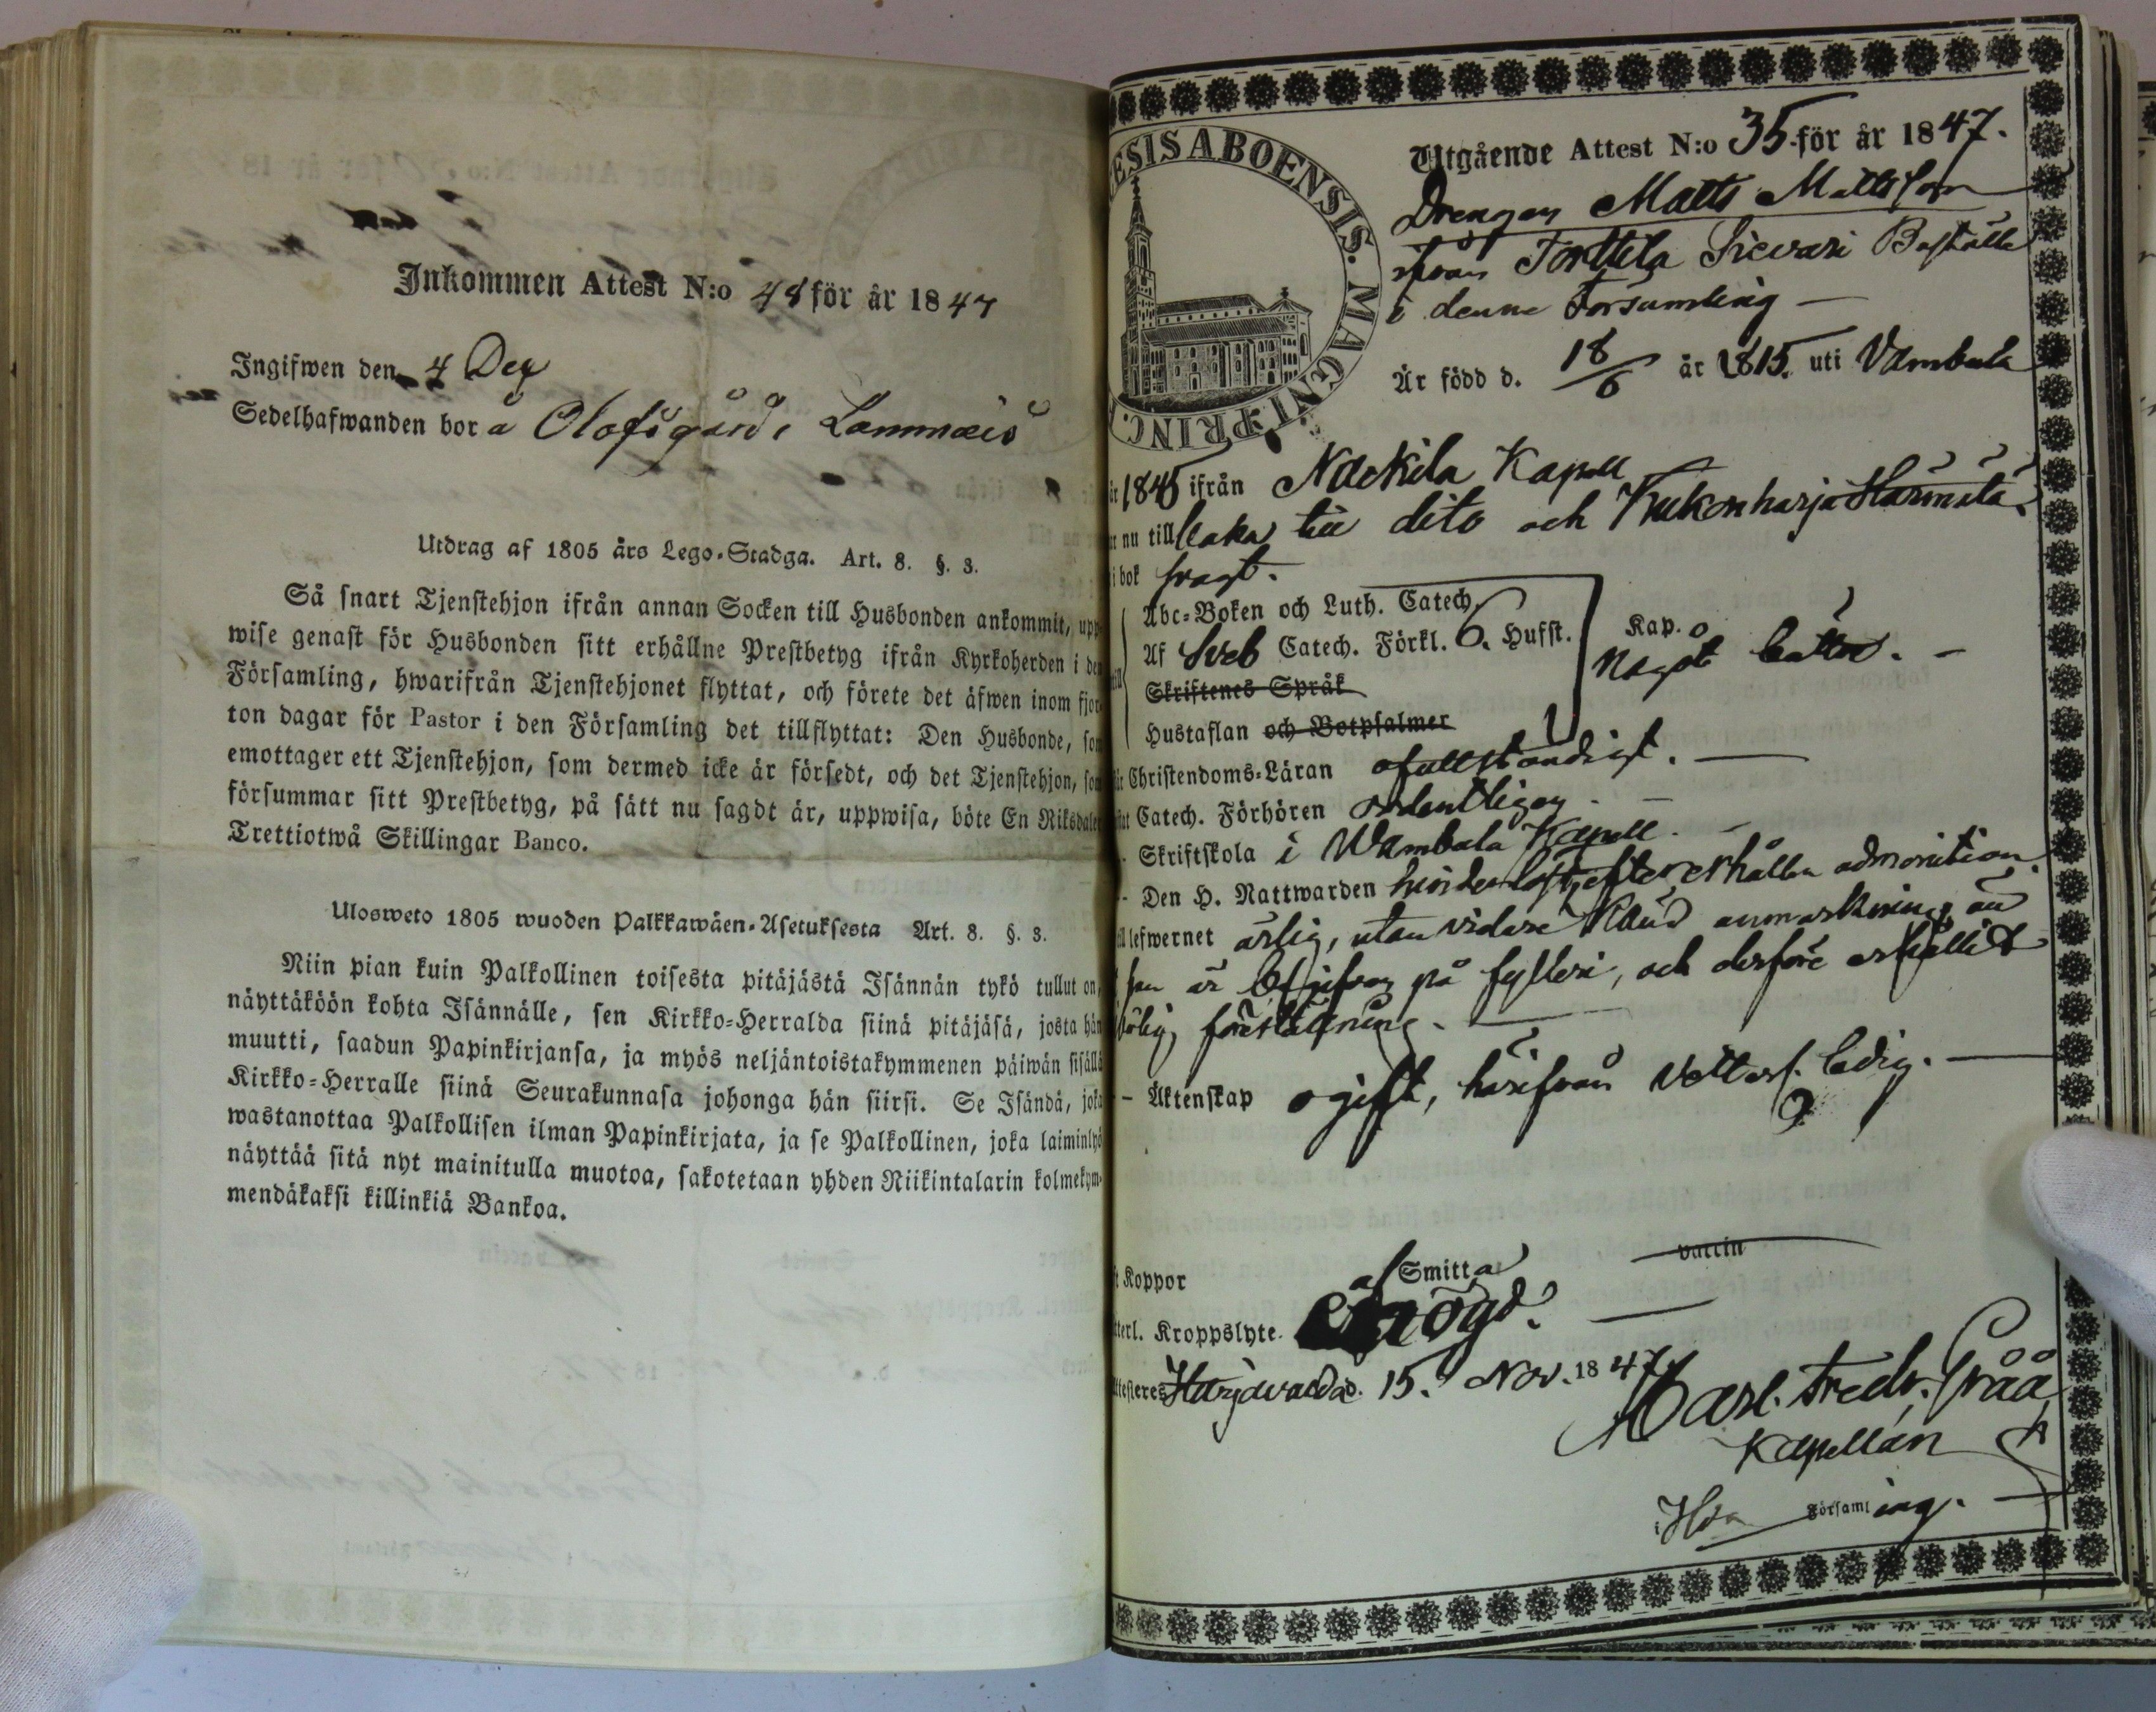 Inkommen Attest N:o 48 för år 1847
Ingifwen den 4 Dec
Sedelhafwanden bor å Olofsgård, Lammais
Utdrag af 1805 års Lego-Stadga. Art. 8. §. 3.
Så snart Tjenstehjon ifrån annan Socken till Husbonden ankommit, upp
wise genast för Husbonden sitt erhållne Prestbetyg ifrån Kyrkoherden i den
Församling, hwarifrån Tjenstehjonet flyttat, och förete det äfwen inom fjor
ton dagar för Pastor i den Församling det tillflyttat: Den Husbonde, som
emottager ett Tjenstehjon, som dermed icke är försedt, och det Tjenstehjon, som
försummar sitt Prestbetyg, på sätt nu sagdt är, uppwisa, böte En Riksdaler
Trettiotwå Skillingar Banco.
Ulosweto 1805 wuoden Palkkawäen-Asetuksesta Art. 8. §. 3.
Niin pian kuin Palkollinen toisesta pitäjästä Isännän tykö tullut on,
näyttäköön kohta Isännälle, sen Kirkko-Herralda siinä pitäjäsä, josta hän
muutti, saadun Papinkirjansa, ja myös neljäntoistakymmenen päiwän sisällä
Kirkko-Herralle siinä Seurakunnasa johonga hän siirsi. Se Isändä, joka
wastanottaa Palkollisen ilman Papinkirjata, ja se Palkollinen, joka laiminlyö
näyttää sitä nyt mainitulla muotoa, sakotetaan yhden Riikintalarin kolmekym-
mendäkaksi killinkiä Bankoa.
ESIS ABOENSIS. MAGNI PRINC.
Utgående Attest N:o 35 för år 1847.
Drengen Matts Mattsson
ifrån Torttila Sievari Boställe
i denne Församling
Är född d. 18/6 år 1815. uti Vambula
år 1845 ifrån Nackila Kapell
nu till baka till dito och Kukonharja Härmälä.
i bok svagt.
Abc-Boken och Luth. Catech.
Af Sveb Catech. Förkl. 6. Hufst.
Kap.
Något bättre.
Skriftenes Språk
Hustaflan och Botpsalmer
Christendoms-Läran ofullständigt.
Catech. Förhören ordentligen
Skriftskola i Wambula Kapell.
Den H. Nattwarden hinderlöst, efter erhållen admonition.
lefwernet ärlig, utan vidare känd anmärkning än
han är begifven på fylleri, och derföre erhållit
förestälning.
Äktenskap ogift, härifrån vetterl. ledig.
Koppor af Smitta vaccin
terl. Kroppslyte. enögd.
Attesteres Harjavalda d. 15. Nov. 1847
Carl. Fredr. Gråå
Kapellan
i Hva Församling.